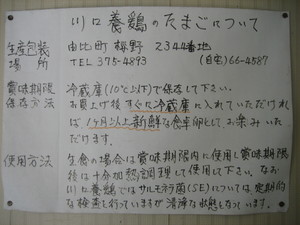 川口養鶏のたまごについて
生産包装 由比町 梅野 2344番地
場所 TEL 375-4893 (自宅)66-4587
賞味期限 冷蔵庫(10℃以下)で保存して下さい。
保存方法 お買上げ後すぐに冷蔵庫に入れていただければ
1ヶ月以上新鮮な食卓卵として、お楽みいた
だけます。
使用方法 生食の場合は賞味期限内に使用し賞味期限
後は十分加熱調理して使用して下さい。なお
川口養鶏ではサルモネラ菌(SE)については、定期的
な検査を行っていますが 清浄な状態となっています。